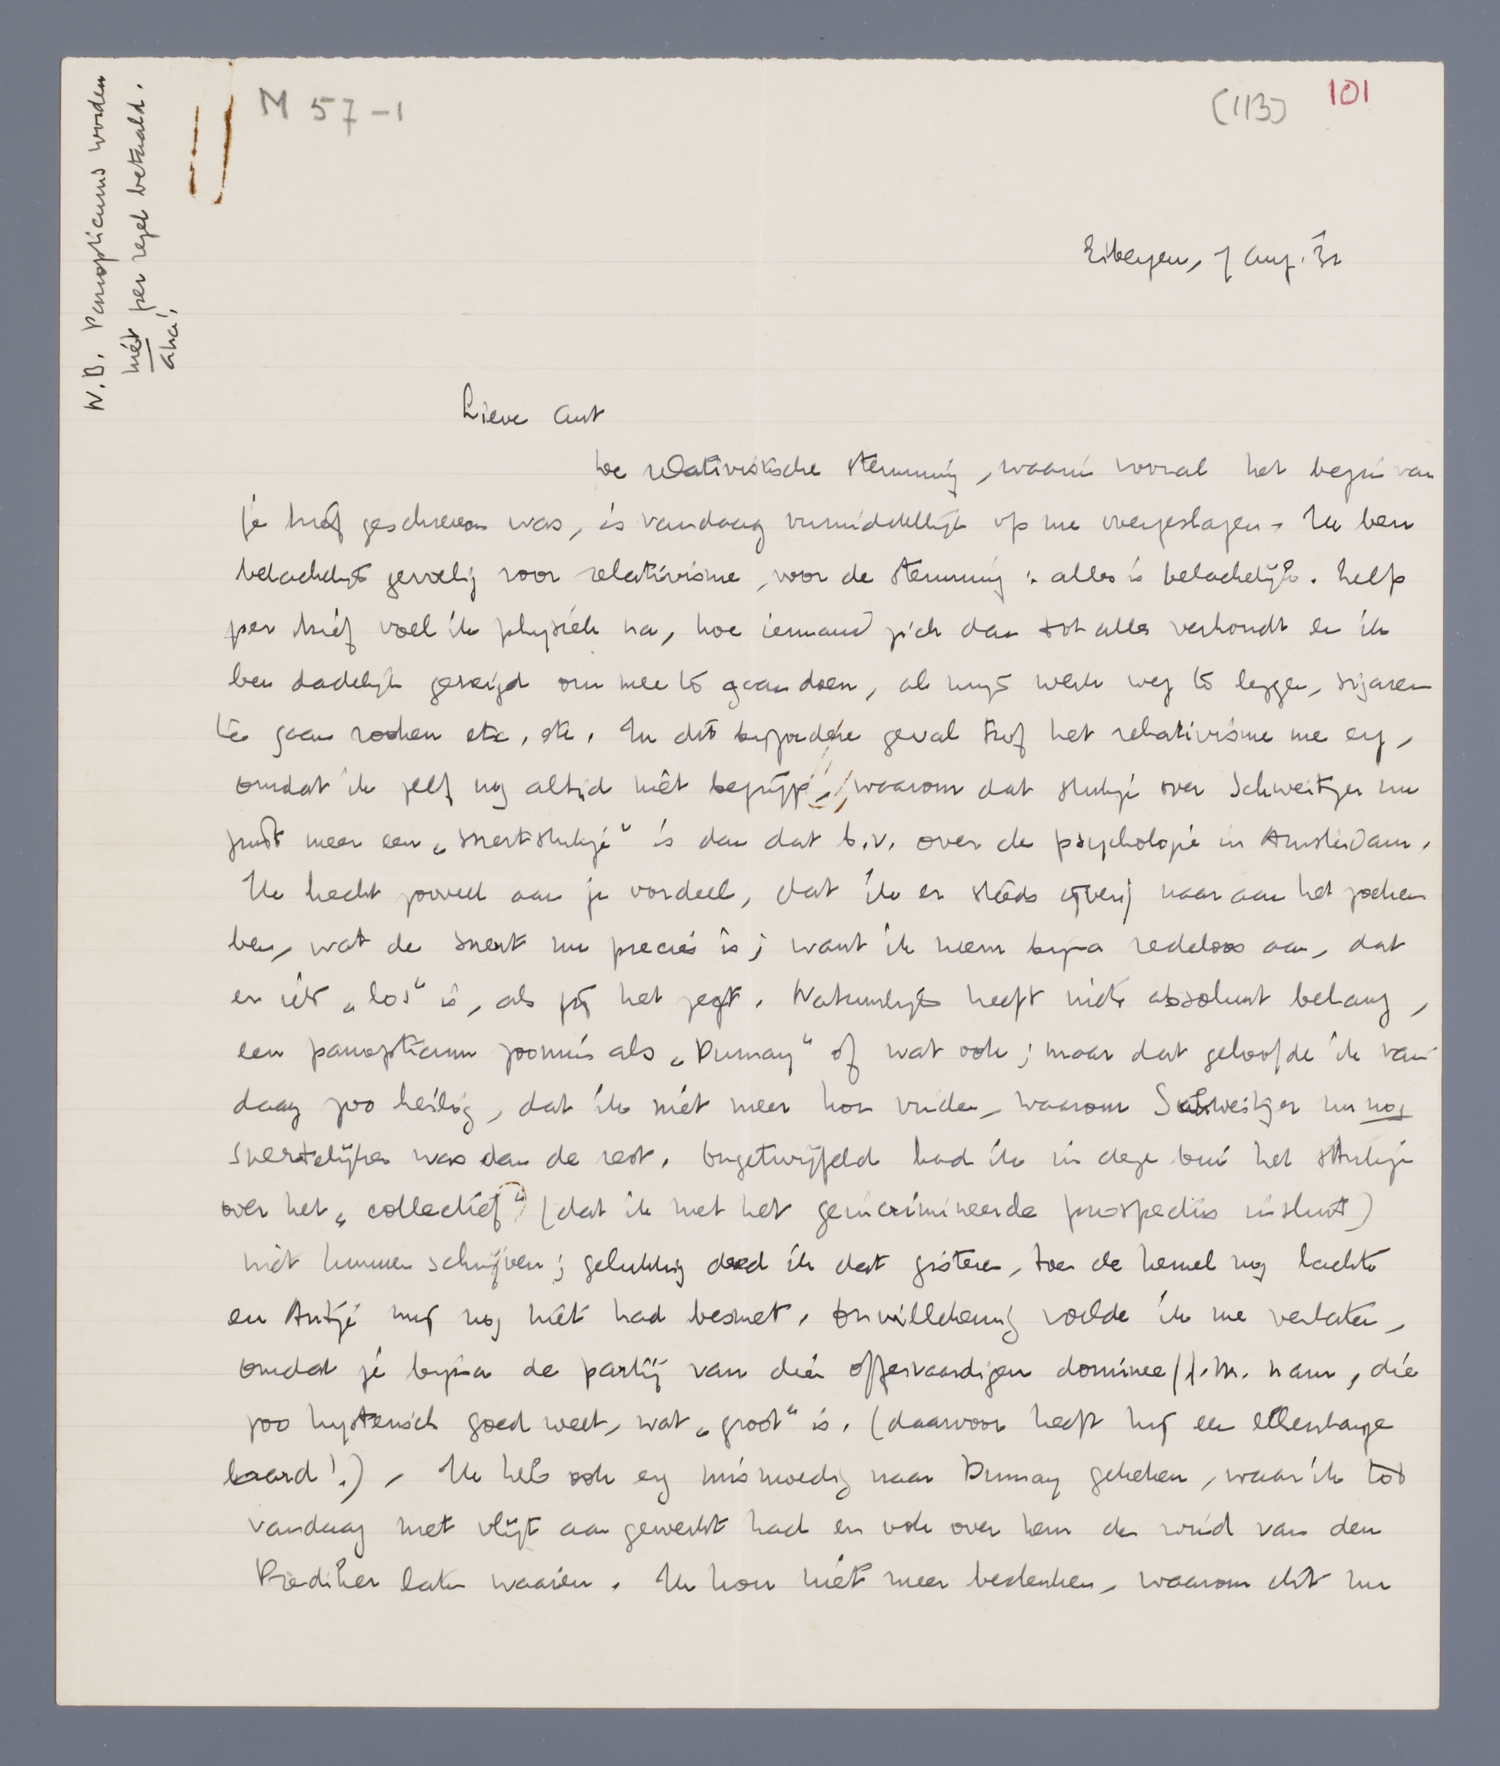 M 57-1
(113) 101
N.B. Panopticums worden
niét per regel betaald.
aha!
Eibergen, 7 Aug. '31
Lieve Ant
De relativistische stemming, waarin vooral het begin van
je brief geschreven was, is vandaag onmiddellijk op me overgeslagen. Ik ben
belachelijk gevoelig voor relativisme, voor de stemming: alles is belachelijk. Zelfs
per brief voel ik physiek na, hoe iemand zich dan tot alles verhoudt en ik
ben dadelijk geneigd om mee te gaan doen, al mijn werk weg te leggen, sigaren
te gaan rooken etc, etc. In dit bijzondere geval trof het relativisme me erg,
omdat ik zelf nog altijd niet begrijp, waarom dat stukje over Schweitzer nu
juist meer een „snertstukje" is dan dat b.v. over de psychologie in Amsterdam.
Ik hecht zooveel aan je oordeel, dat ik er steeds ijverig naar aan het zoeken
ben, wat de snert nu precies is; want ik neem bijna redeloos aan, dat
er iets „los" is, als jij het zegt. Natuurlijk heeft niets absoluut belang,
een panopticum zoomin als „Dumay" of wat ook; maar dat geloofde ik van
daag zoo heilig, dat ik niet meer kon vinden, waarom Schweitzer nu nog
snertelijker was dan de rest. Ongetwijfeld had ik in deze bui het stukje
over het „collectief" (dat ik met het geïncrimineerde prospectus insluit)
niet kunnen schrijven; gelukkig deed ik dat gisteren, toen de hemel nog lachte
en Antje mij nog niet had besmet. Onwillekeurig voelde ik me verlaten,
omdat je bijna de partij van dien offervaardigen dominee / J.M. nam, die
zoo hysterisch goed weet, wat „groot" is. (daarvoor heeft hij een ellenlange
baard!). Ik heb ook erg mismoedig naar Dumay gekeken, waar ik tot
vandaag met vlijt aan gewerkt had en ook over hem de wind van den
Prediker laten waaien. Ik kon niet meer bedenken, waarom dit nu